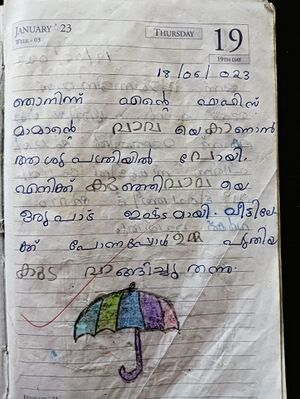 JANUARY ' 23
WEEK - 03
THURSDAY
19
19TH DAY
18/06/023
ഞാനിന്ന് എന്റെ ഹഫിസ്
മാമാന്റെ വാവ യെകാണാൻ
ആശുപത്രിയിൽ പോയി.
എനിക്ക് കുഞ്ഞിവാവ യെ
ഒരുപാട് ഇഷ്ടമായി. വീട്ടിലേ
ക്ക് പോന്നപ്പോൾ ഉമ്മ പുതിയ
കുട വാങ്ങിച്ചു തന്നു.